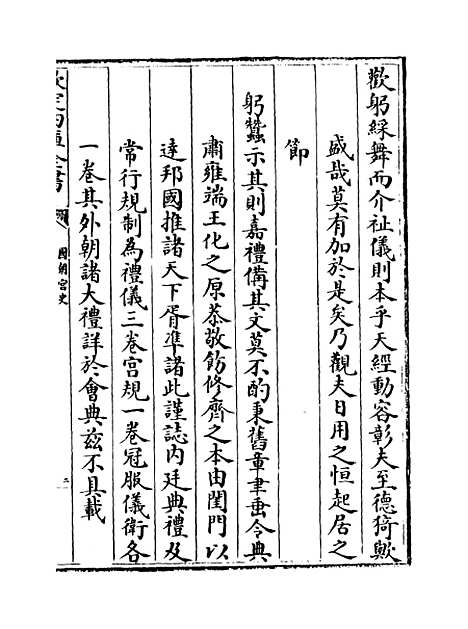 歡躬綵舞而介祉儀則本乎天經動容彰夫至德猗歟
盛哉莫有加於是矣乃觀夫日用之恒起居之
節
躬蠶示其則嘉禮備其文莫不酌秉舊章聿垂令典
肅雍端王化之原恭敬飭修齊之本由閨門以
達邦國推諸天下胥準諸此謹誌内廷典禮及
常行規制為禮儀三卷宫規一卷冠服儀衛各
一卷其外朝諸大禮詳於會典兹不具載
欽定四庫全書
國朝宫史
二